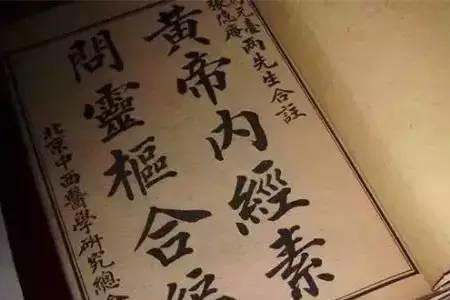 元臺
張隱庵
兩先生合註
黃帝內經素
問靈樞合
北京中西醫學研究總會